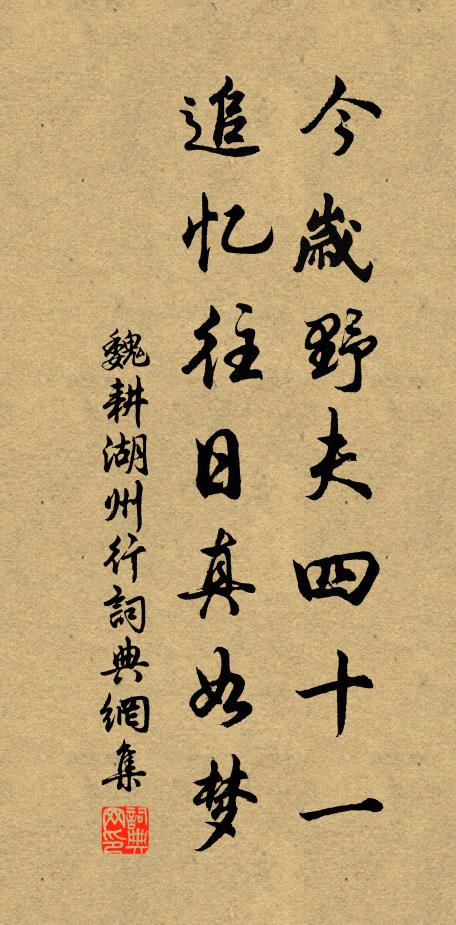 今歲野夫四十一
追忆往日真如梦
魏耕湖州行詞典網集
詞典网印